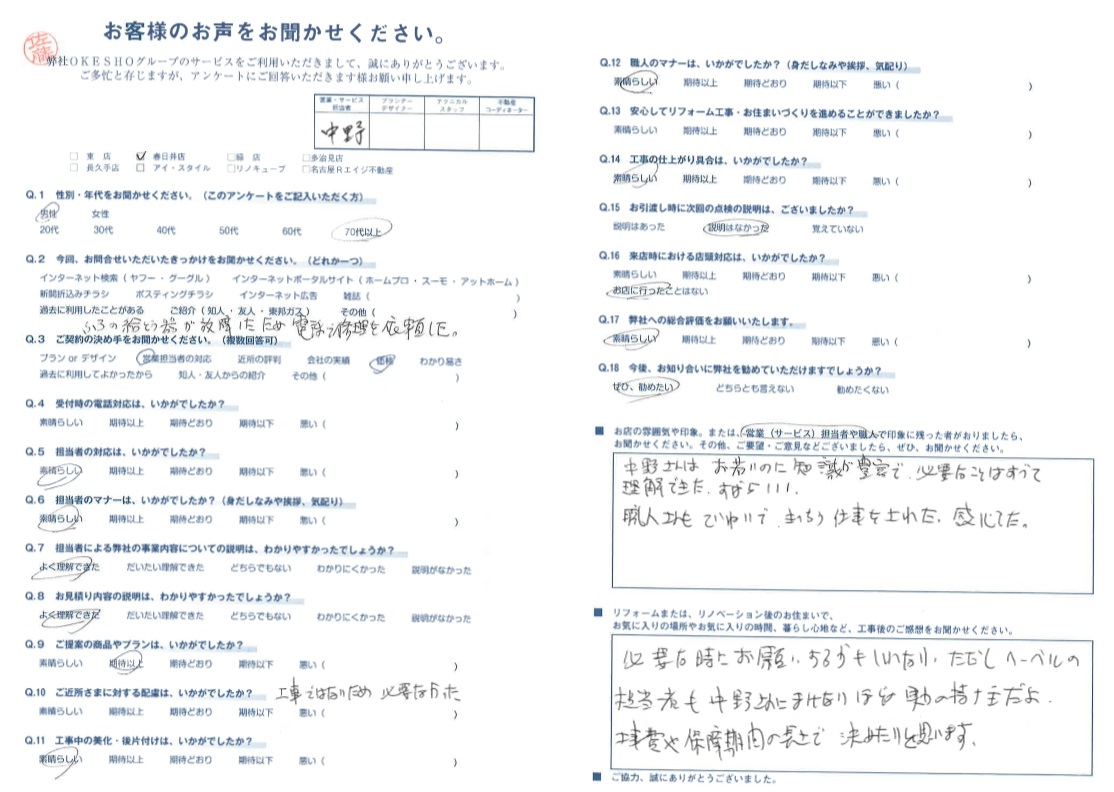 お客様のお声をお聞かせください。
佐藤
弊社OKESHOグループのサービスをご利用いただきまして、誠にありがとうございます。
ご多忙と存じますが、アンケートにご回答いただきます様お願い申し上げます。
営業・サービス担当者 プランナーデザイナー テクニカルスタッフ 不動産コーディネーター
中野
□ 東 店 ☑ 春日井店 □ 緑 店 □ 多治見店
□ 長久手店 □ アイ・スタイル □リノキューブ □名古屋Rエイジ不動産
Q.1 性別・年代をお聞かせください。(このアンケートをご記入いただく方)
男性 女性
20代 30代 40代 50代 60代 70代以上
Q.2 今回、お問合せいただいたきっかけをお聞かせください。(どれか一つ)
インターネット検索(ヤフー・グーグル) インターネットポータルサイト(ホームプロ・スーモ・アットホーム)
新聞折込みチラシ ポスティングチラシ インターネット広告 雑誌( )
過去に利用したことがある ご紹介(知人・友人・東邦ガス) その他( )
ふろの給とう器が故障したため電話で修理を依頼した。
Q.3 ご契約の決め手をお聞かせください。(複数回答可)
プラン or デザイン 営業担当者の対応 近所の評判 会社の実績 価格 わかり易さ
過去に利用してよかったから 知人・友人からの紹介 その他( )
Q.4 受付時の電話対応は、いかがでしたか?
素晴らしい 期待以上 期待どおり 期待以下 悪い( )
Q.5 担当者の対応は、いかがでしたか?
素晴らしい 期待以上 期待どおり 期待以下 悪い( )
Q.6 担当者のマナーは、いかがでしたか?(身だしなみや挨拶、気配り)
素晴らしい 期待以上 期待どおり 期待以下 悪い( )
Q.7 担当者による弊社の事業内容についての説明は、わかりやすかったでしょうか?
よく理解できた だいたい理解できた どちらでもない わかりにくかった 説明がなかった
Q.8 お見積り内容の説明は、わかりやすかったでしょうか?
よく理解できた だいたい理解できた どちらでもない わかりにくかった 説明がなかった
Q.9 ご提案の商品やプランは、いかがでしたか?
素晴らしい 期待以上 期待どおり 期待以下 悪い( )
Q.10 ご近所さまに対する配慮は、いかがでしたか? 工事ではないため必要なかった
素晴らしい 期待以上 期待どおり 期待以下 悪い( )
Q.11 工事中の美化・後片付けは、いかがでしたか?
素晴らしい 期待以上 期待どおり 期待以下 悪い( )
Q.12 職人のマナーは、いかがでしたか?(身だしなみや挨拶、気配り)
素晴らしい 期待以上 期待どおり 期待以下 悪い( )
Q.13 安心してリフォーム工事・お住まいづくりを進めることができましたか?
素晴らしい 期待以上 期待どおり 期待以下 悪い( )
Q.14 工事の仕上がり具合は、いかがでしたか?
素晴らしい 期待以上 期待どおり 期待以下 悪い( )
Q.15 お引渡し時に次回の点検の説明は、ございましたか?
説明はあった 説明はなかった 覚えていない
Q.16 来店時における店頭対応は、いかがでしたか?
素晴らしい 期待以上 期待どおり 期待以下 悪い( )
お店に行ったことはない
Q.17 弊社への総合評価をお願いいたします。
素晴らしい 期待以上 期待どおり 期待以下 悪い( )
Q.18 今後、お知り合いに弊社を勧めていただけますでしょうか?
ぜひ、勧めたい どちらとも言えない 勧めたくない
■ お店の雰囲気や印象。または、営業(サービス)担当者や職人で印象に残った者がおりましたら、
お聞かせください。その他、ご要望・ご意見などございましたら、ぜひ、お聞かせください。
中野さんは お若いのに知識が豊富で、必要なことはすべて
理解できた。すばらしい。
職人さんもていねいで、きっちり仕事をされた。感心した。
■ リフォームまたは、リノベーション後のお住まいで、
お気に入りの場所やお気に入りの時間、暮らし心地など、工事後のご感想をお聞かせください。
必要な時にお願いするかもしれない。ただしヘーベルの
担当者も中野さんにまけないほどの持ち主だよ。
工事費や保障期間の長さで決めたいと思います。
■ ご協力、誠にありがとうございました。